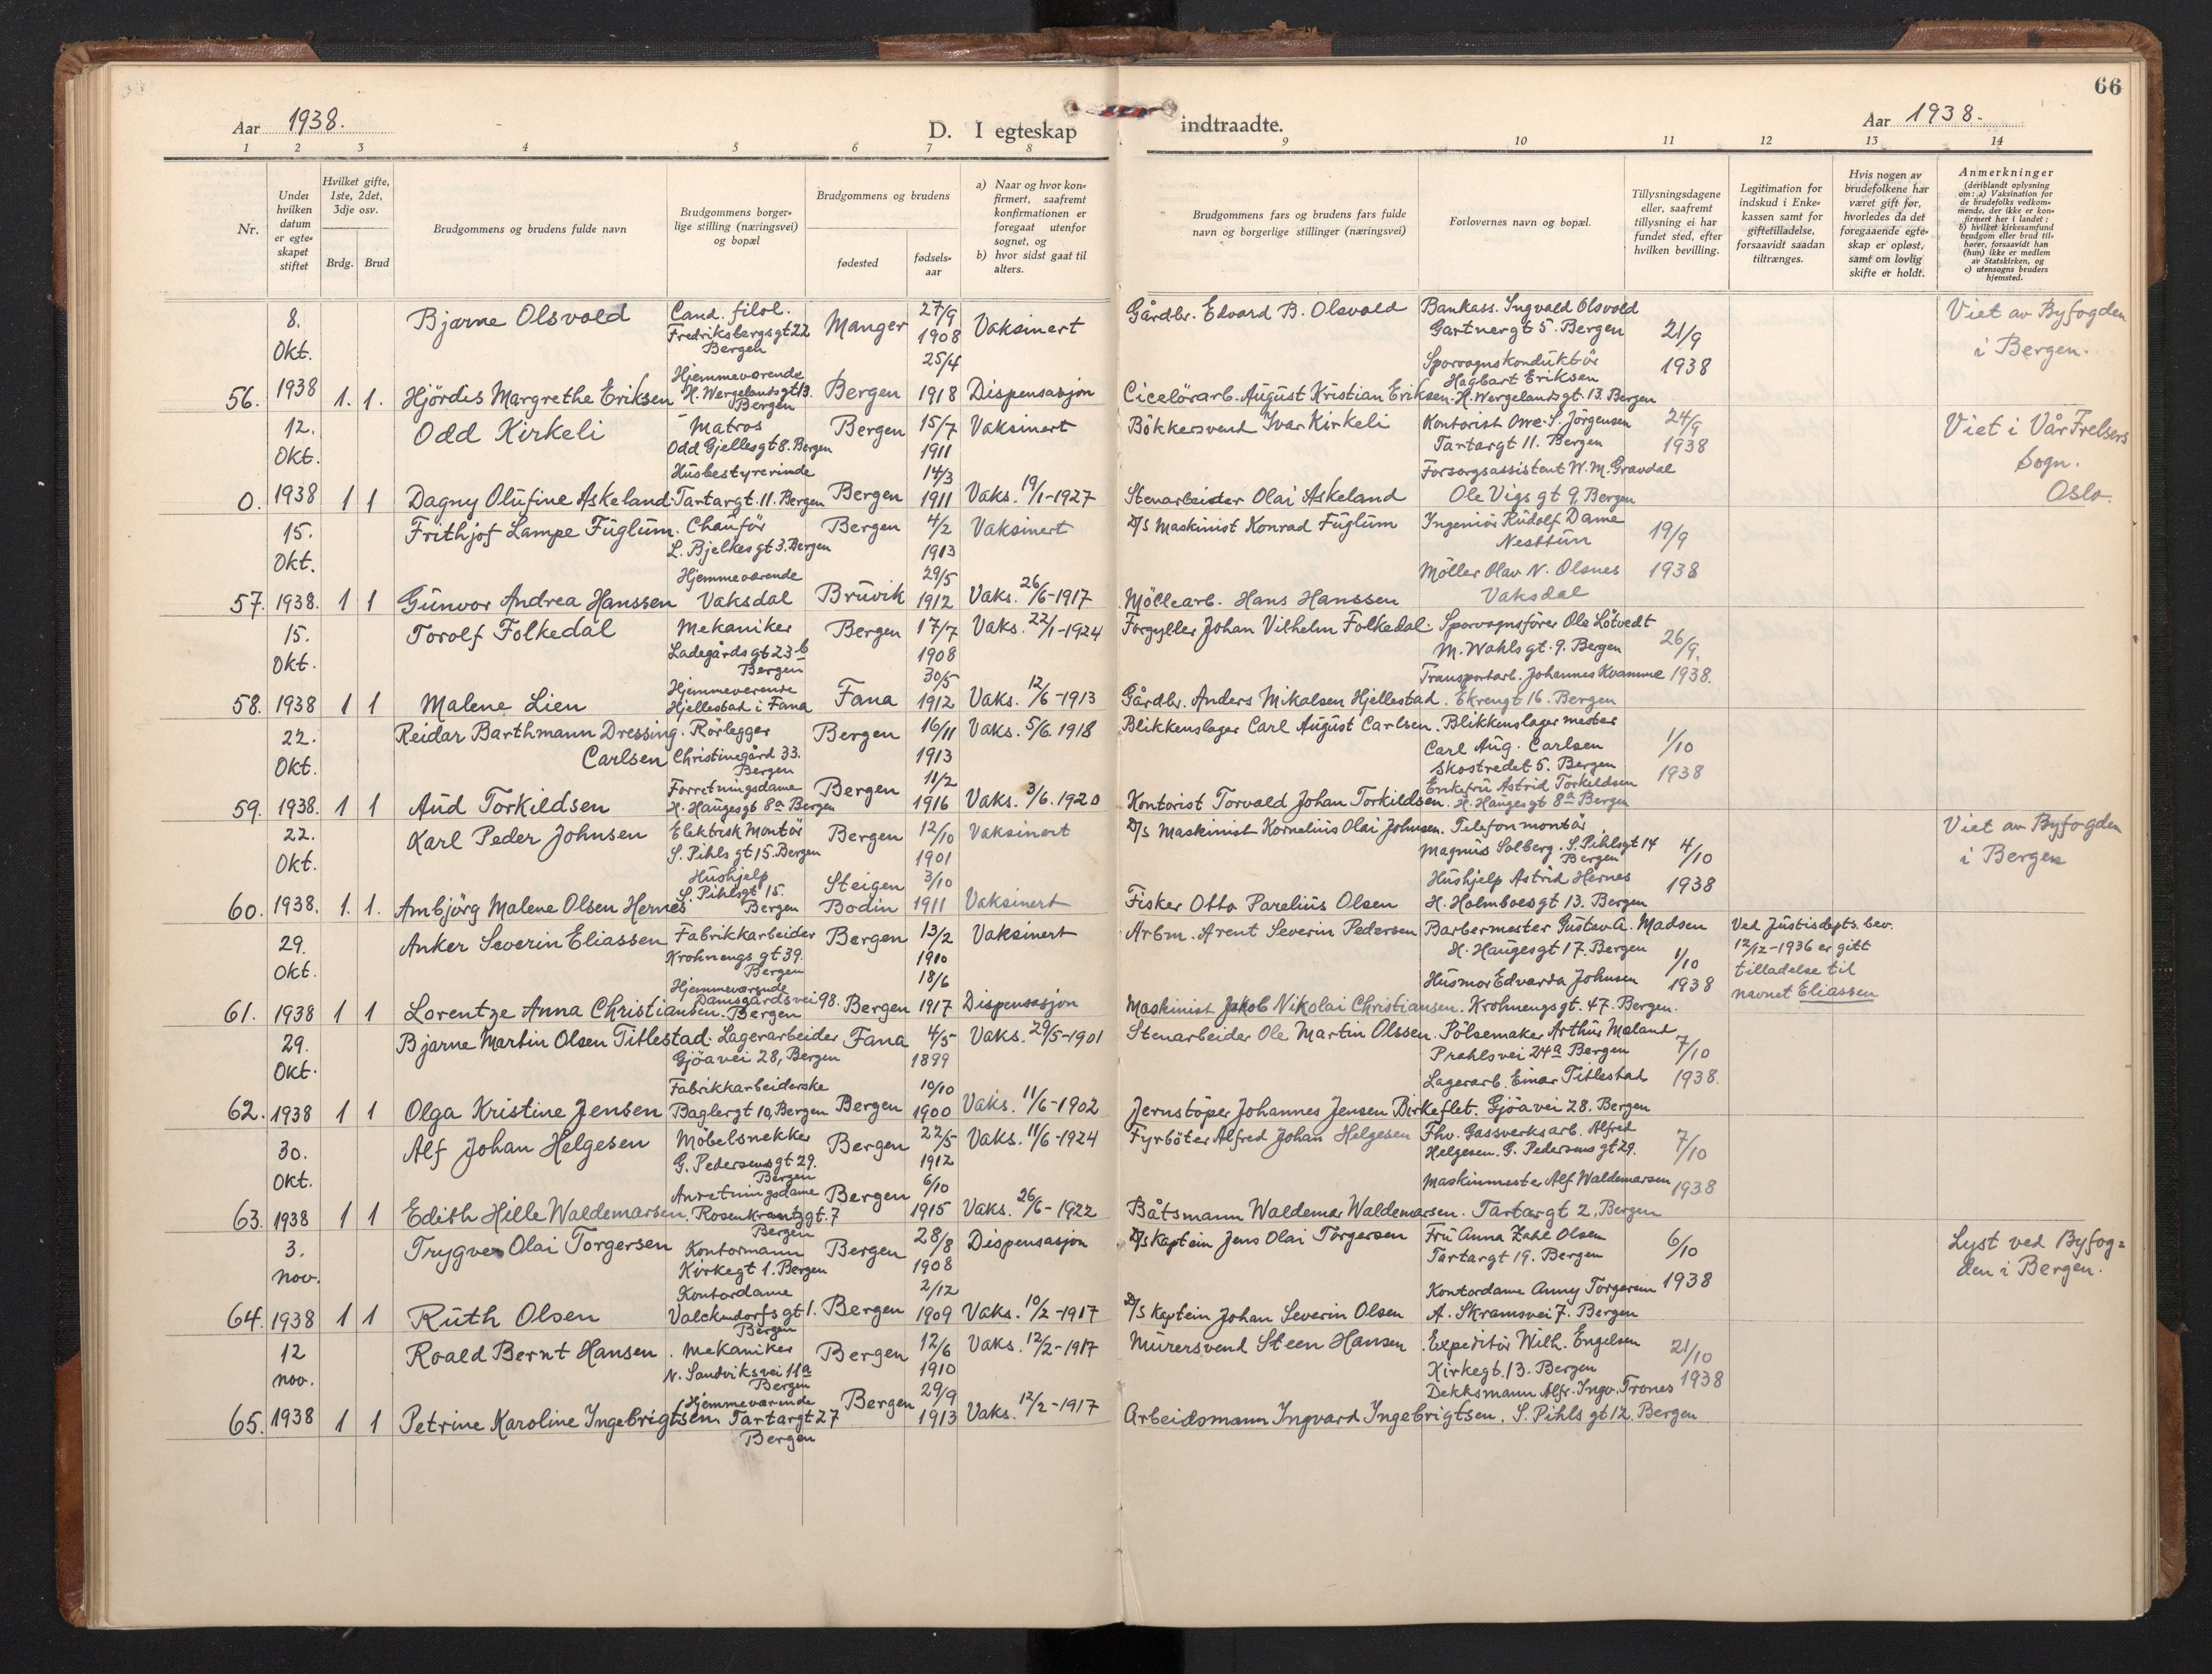 66
Aar 1938.
D. I egteskap indtraadte.
Aar 1938.
1 2 3 4 5 6 7 8 9 10 11 12 13 14
Nr.
Under
hvilken
datum
er egte-
skapet
stiftet
Hvilket gifte,
1ste, 2det,
3dje osv.
Brdg. Brud
Brudgommens og brudens fulde navn
Brudgommens borger-
lige stilling (næringsvei)
og bopæl
Brudgommens og brudens
fødested
fødsels-
aar
a) Naar og hvor kon-
firmert, saafremt
konfirmationen er
foregaat utenfor
sognet, og
b) hvor sidst gaat til
alters.
Brudgommens fars og brudens fars fulde
navn og borgerlige stillinger (næringsvei)
Forlovernes navn og bopæl.
Tillysningsdagene
eller, saafremt
tillysning ei har
fundet sted, efter
hvilken bevilling.
Legitimation for
indskud i Enke-
kassen samt for
giftetilladelse,
forsaavidt saadan
tiltrænges.
Hvis nogen av
brudefolkene har
været gift før,
hvorledes da det
foregaaende egte-
skap er opløst,
samt om lovlig
skifte er holdt.
Anmerkninger
(deriblandt oplysning
om: a) Vaksination for
de brudefolks vedkom-
mende, der ikke er kon-
firmert her i landet;
b) hvilket kirkesamfund
brudgom eller brud til-
hører, forsaavidt han
(hun) ikke er medlem
av Statskirken, og
c) utensogns bruders
hjemsted.
56. 8. Okt. 1938 1. 1.
Bjarne Olsvold
Cand. filol.
Fredriksbergsgt 22
Bergen
Manger 27/9 1908 Vaksinert
Gårdbr. Edvard B. Olsvold
Bankass. Ingvald Olsvold
Gartnergt 5. Bergen
21/9 1938
Viet av Byfogden
i Bergen.
Hjördis Margrethe Eriksen
Hjemmeværende
H. Wergelandsgt 13.
Bergen
Bergen 25/4 1918 Dispensasjon
Cicelörarb. August Kristian Eriksen.
Sporvognskonduktör
Hagbart Eriksen
H. Wergelandsgt. 13. Bergen
0. 12. Okt. 1938 1 1
Odd Kirkeli
Matros
Odd Gjellesgt 8. Bergen
Bergen 15/7 1911 Vaksinert
Bökkersvend Ivar Kirkeli
Kontorist Owe S. Jörgensen
Tartargt 11. Bergen
24/9 1938
Viet i Vår Frelsers
Sogn.
Oslo.
Dagny Olufine Askeland
Husbestyrerinde
Tartargt. 11. Bergen
Bergen 14/3 1911 Vaks. 19/1-1927
Stenarbeider Olai Askeland
Forsorgsassistent W. M. Gravdal
Ole Vigs gt 9. Bergen
57. 15. Okt. 1938. 1 1
Frithjof Lampe Fuglum.
Chauför
L. Bjelkes gt 3. Bergen
Bergen 4/2 1913 Vaksinert
D/S Maskinist Konrad Fuglum
Ingeniör Rudolf Dame
Nesttun
19/9 1938
Gunvor Andrea Hanssen
Hjemmeværende
Vaksdal
Bruvik 29/5 1912 Vaks. 26/6-1917
Möllearb. Hans Hanssen
Möller Olav N. Olsnes
Vaksdal
58. 15. Okt. 1938 1 1
Torolf Folkedal
Mekaniker
Ladegårdsgt 23 b
Bergen
Bergen 17/7 1908 Vaks. 22/1-1924
Forgyller Johan Vilhelm Folkedal.
Sporvognsförer Ole Lötvedt
M. Wahls gt. 9. Bergen
26/9. 1938.
Malene Lien
Hjemmeværende
Hjellestad i Fana
Fana 30/5 1912 Vaks. 12/6-1913
Gårdbr. Anders Mikalsen Hjellestad.
Transportarb. Johannes Kvamme
Ekrengt 16. Bergen
59. 22. Okt. 1938. 1 1
Reidar Barthmann Dressing
Carlsen
Rörlegger
Christinegård 33.
Bergen
Bergen 16/11 1913 Vaks. 5/6. 1918
Blikkenslager Carl August Carlsen.
Blikkenslagermester
Carl Aug. Carlsen
Skostredet 5. Bergen
1/10 1938
Aud Torkildsen
Forretningsdame
H. Haugesgt 8a Bergen
Bergen 11/2 1916 Vaks. 3/6. 1920
Kontorist Torvald Johan Torkildsen.
Enkefru Astrid Torkildsen
H. Haugesgt 8a Bergen
60. 22. Okt. 1938. 1. 1.
Karl Peder Johnsen
Elektrisk Montör
S. Pihls gt 15. Bergen
Bergen 12/10 1901 Vaksinert
D/S Maskinist Kornelius Olai Johnsen.
Telefonmontör
Magnus Solberg. S. Pihlsgt 14
Bergen
4/10 1938
Viet av Byfogden
i Bergen
Ambjörg Malene Olsen Hernes
Hushjelp
S. Pihlsgt 15.
Bergen
Steigen
Bodin 3/10 1911 Vaksinert
Fisker Otto Parelius Olsen
Hushjelp Astrid Hernes
H. Holmboesgt 13. Bergen
61. 29. Okt. 1938 1 1
Anker Severin Eliassen
Fabrikkarbeider
Krohnengsgt 39.
Bergen
Bergen 13/2 1910 Vaksinert
Arbm. Arent Severin Pedersen
Barbermester Gustav A. Madsen
H. Haugesgt 17. Bergen
1/10 1938
Ved Justisdepts. bev.
12/12-1936 er gitt
tilladelse til
navnet Eliassen
Lorentze Anna Christiansen.
Hjemmeværende
Damsgårdsvei 98.
Bergen
Bergen 18/6 1917 Dispensasjon
Maskinist Jakob Nikolai Christiansen.
Husmor Edvarda Johnsen
Krohnengsgt. 47. Bergen.
62. 29. Okt. 1938 1 1
Bjarne Martin Olsen Titlestad.
Lagerarbeider
Gjöavei 28, Bergen
Fana 4/5 1899 Vaks. 29/5-1901
Stenarbeider Ole Martin Olssen.
Pölsemaker Arthur Moland
Prahlsvei 24a Bergen
7/10 1938.
Olga Kristine Jensen
Fabrikkarbeiderske
Baglergt 10, Bergen
Bergen 10/10 1900 Vaks. 11/6-1902
Jernstöper Johannes Jensen Birkeflet.
Lagerarb. Einar Titlestad
Gjöavei 28. Bergen
63. 30. Okt. 1938 1 1
Alf Johan Helgesen
Möbelsnekker
G. Pedersensgt 29.
Bergen
Bergen 22/5 1912 Vaks. 11/6-1924
Fyrböter Alfred Johan Helgesen
Fhv. Gassverksarb. Alfred
Helgesen. G. Pedersens gt 29.
7/10 1938
Edith Hille Waldemarsen.
Anretningsdame
Rosenkrantzgt. 7
Bergen
Bergen 6/10 1915 Vaks. 26/6-1922
Båtsmann Waldemar Waldemarsen.
Maskinmester Alf Waldemarsen
Tartargt 2, Bergen
64. 3. nov. 1938 1 1
Trygve Olai Torgersen
Kontormann
Kirkegt 1. Bergen
Bergen 28/8 1908 Dispensasjon
D/S Kaptein Jens Olai Torgersen
Fru Anna Zahl Olsen
Tartargt 19. Bergen
6/10 1938
Lyst ved Byfog-
den i Bergen.
Ruth Olsen
Kontordame
Valckendorfsgt 1.
Bergen
Bergen 2/12 1909 Vaks. 10/2-1917
D/S Kaptein Johan Severin Olsen
Kontordame Anny Torgersen
A. Skramsvei 7. Bergen
65. 12 nov. 1938 1 1
Roald Bernt Hansen.
Mekaniker
N. Sandviksvei 11a
Bergen
Bergen 12/6 1910 Vaks. 12/2-1917
Murersvend Steen Hansen
Expeditör Wilh. Engelsen
Kirkegt. 13. Bergen
21/10 1938
Petrine Karoline Ingebrigtsen
Hjemmeværende
Tartargt 27
Bergen
Bergen 29/9 1913 Vaks. 12/2-1917
Arbeidsmann Ingvard Ingebrigtsen.
Dekksmann Alfr. Ingv. Trones
S. Pihls gt 12. Bergen